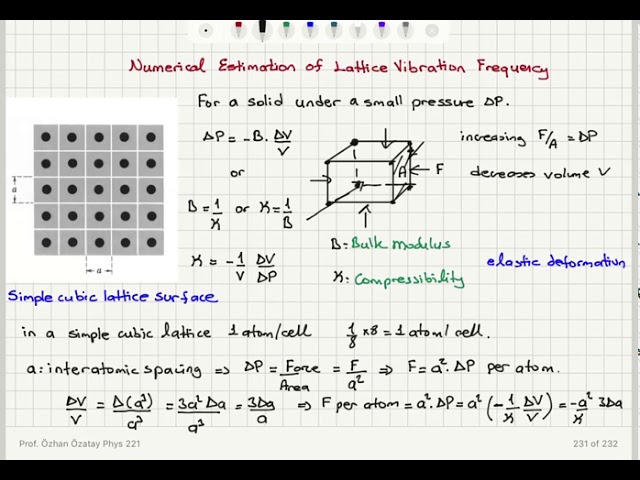 Numerical Estimation of Lattice Vibration Frequency
For a solid under a small pressure ΔP.
ΔP = -B. ΔV/V
increasing F/A = ΔP
A
F
or
decreases volume V
B = 1/K or K = 1/B
B: Bulk modulus
K = -1/V ΔV/ΔP
elastic deformation
K: Compressibility
a
a
Simple cubic lattice surface
in a simple cubic lattice 1 atom/cell 1/8 x 8 = 1 atom/cell.
a: interatomic spacing ⇒ ΔP = Force/Area = F/a² ⇒ F = a². ΔP per atom.
ΔV/V = Δ(a³)/a³ = 3a²Δa/a³ = 3Δa/a ⇒ F per atom = a². ΔP = a² (-1/K ΔV/V) = -a²/K 3Δa/a
Prof. Özhan Özatay Phys 221
231 of 232